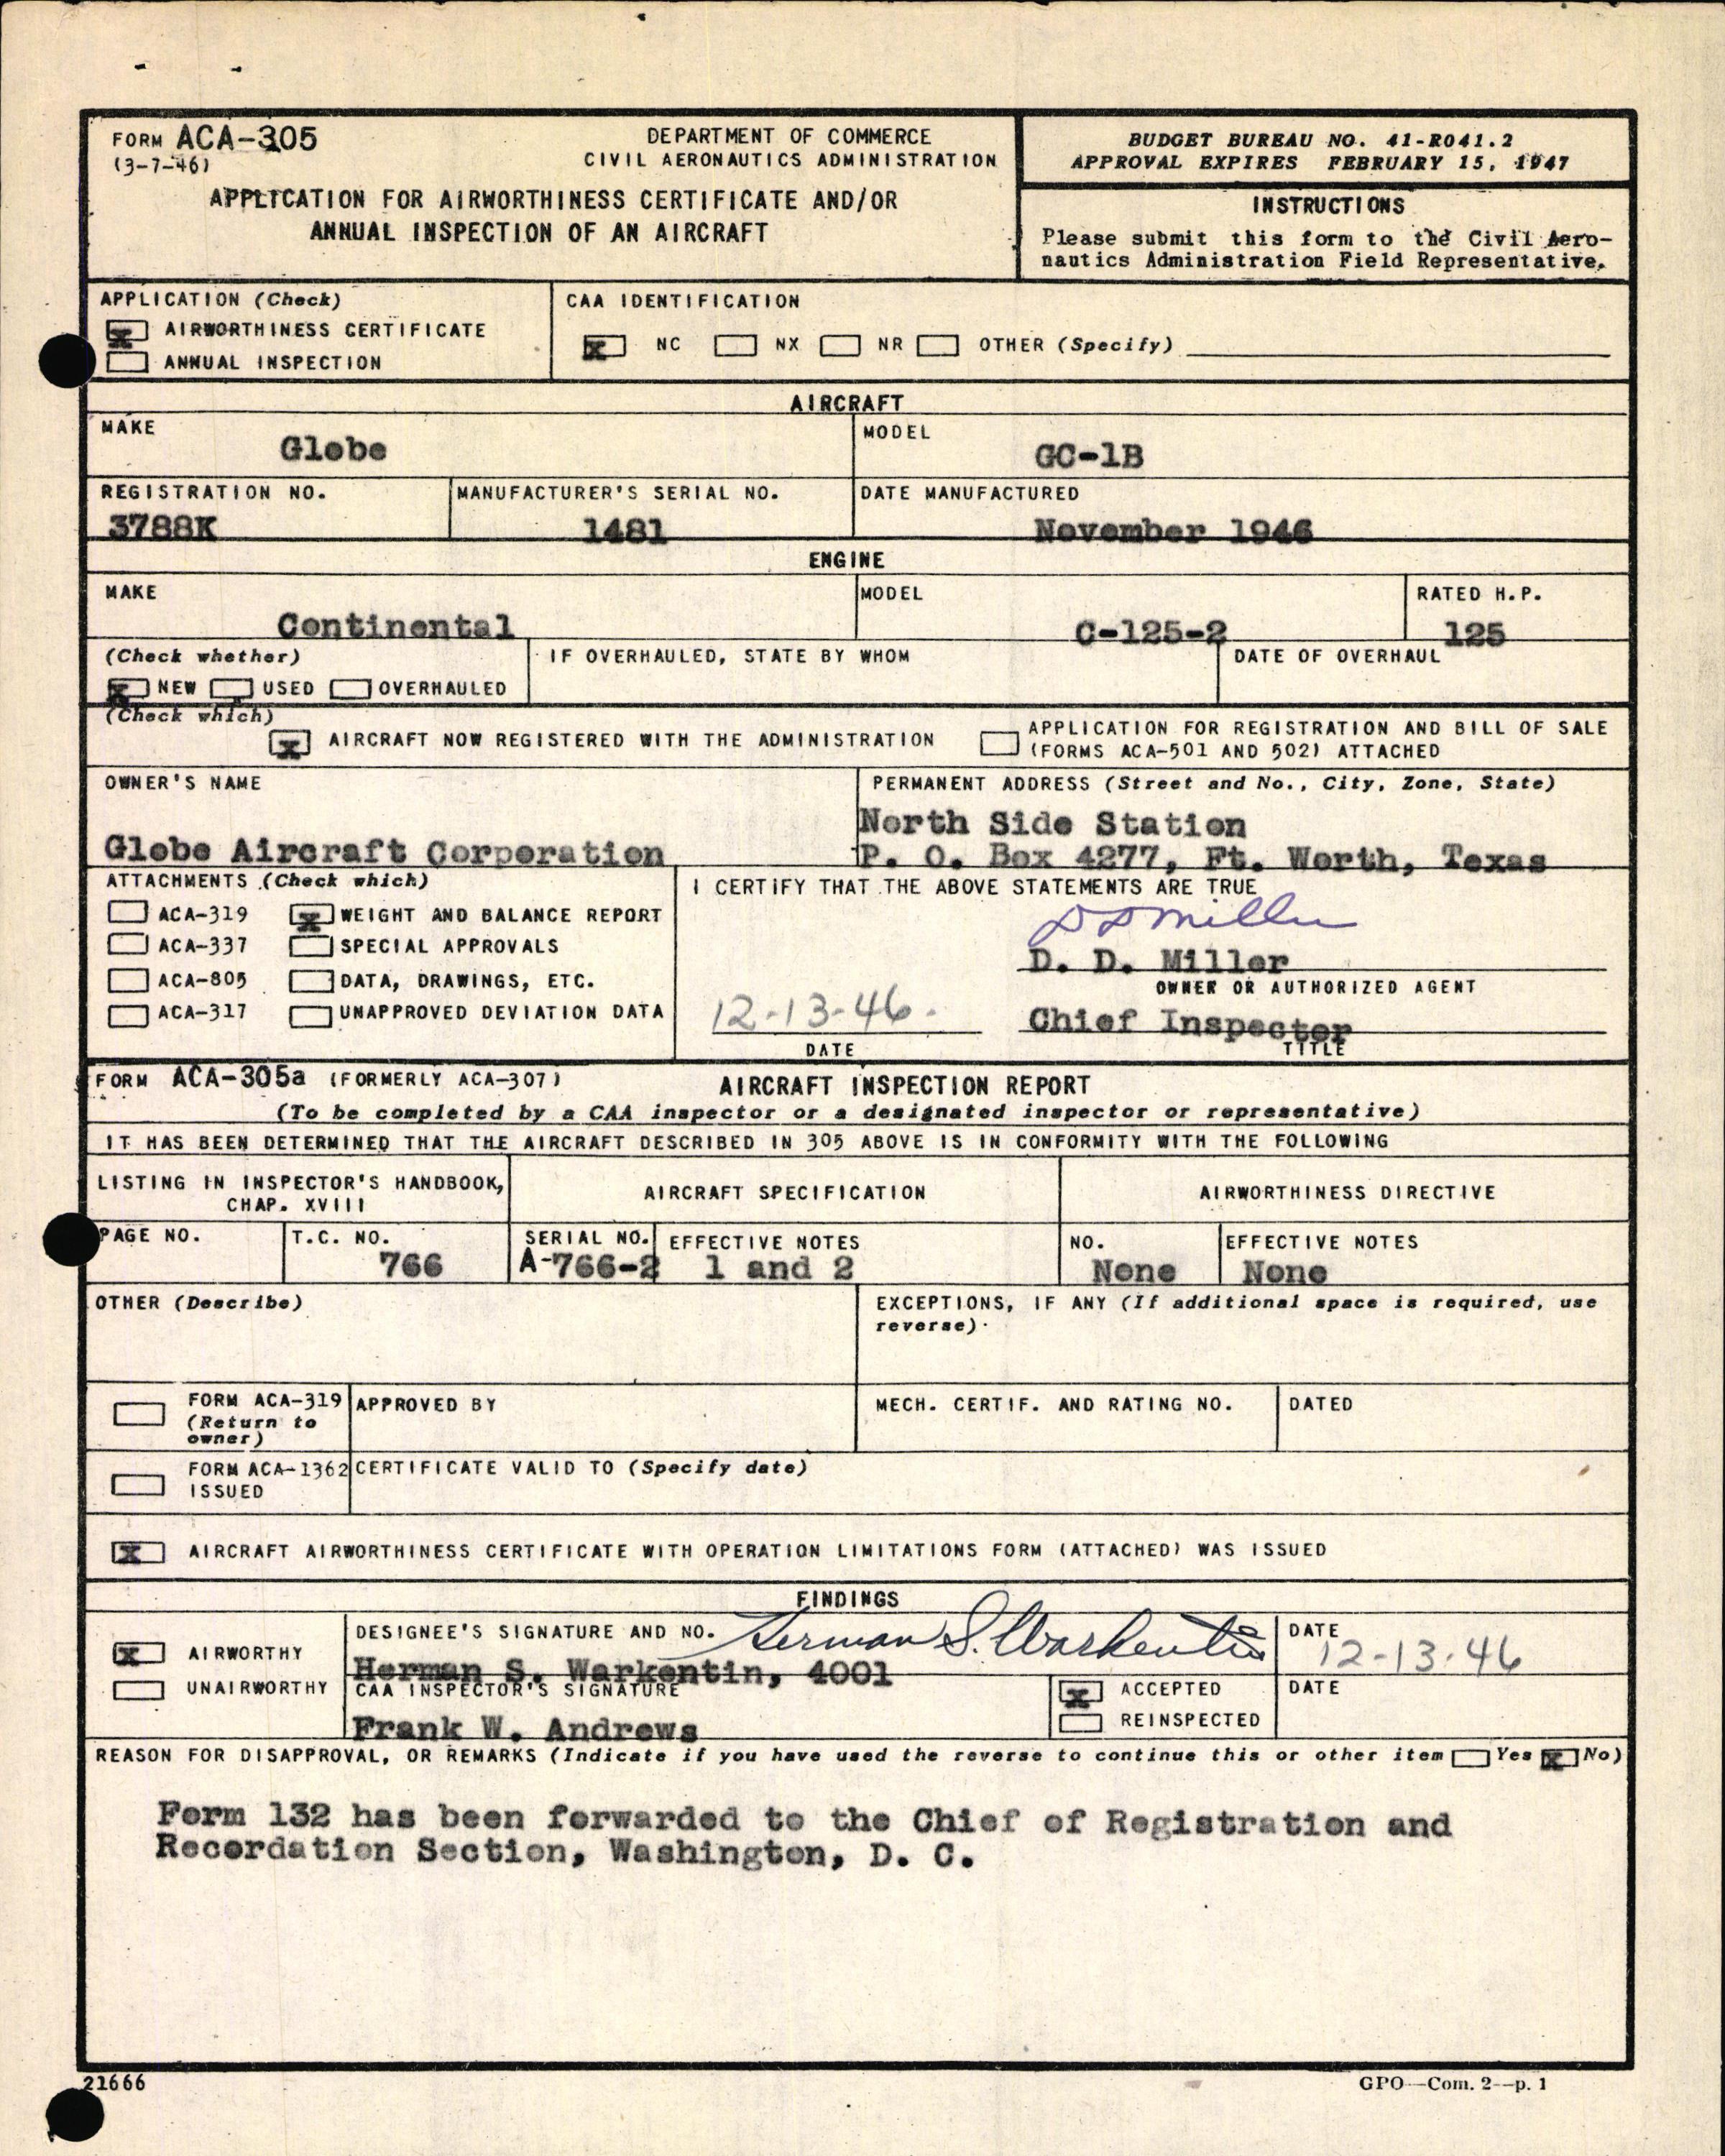 FORM ACA-305
(3-7-46)
DEPARTMENT OF COMMERCE
CIVIL AERONAUTICS ADMINISTRATION
APPLICATION FOR AIRWORTHINESS CERTIFICATE AND/OR
ANNUAL INSPECTION OF AN AIRCRAFT
BUDGET BUREAU NO. 41-R041.2
APPROVAL EXPIRES FEBRUARY 15, 1947
INSTRUCTIONS
Please submit this form to the Civil Aero-
nautics Administration Field Representative.
APPLICATION (Check)
x AIRWORTHINESS CERTIFICATE
ANNUAL INSPECTION
CAA IDENTIFICATION
x NC NX NR OTHER (Specify)
AIRCRAFT
MAKE
Globe
MODEL
GC-1B
REGISTRATION NO.
3788K
MANUFACTURER'S SERIAL NO.
1481
DATE MANUFACTURED
November 1946
ENGINE
MAKE
Continental
MODEL
C-125-2
RATED H.P.
125
(Check whether)
x NEW USED OVERHAULED
IF OVERHAULED, STATE BY WHOM
DATE OF OVERHAUL
(Check which)
x AIRCRAFT NOW REGISTERED WITH THE ADMINISTRATION
APPLICATION FOR REGISTRATION AND BILL OF SALE
(FORMS ACA-501 AND 502) ATTACHED
OWNER'S NAME
Globe Aircraft Corporation
PERMANENT ADDRESS (Street and No., City, Zone, State)
North Side Station
P. O. Box 4277, Ft. Worth, Texas
ATTACHMENTS (Check which)
ACA-319 x WEIGHT AND BALANCE REPORT
ACA-337 SPECIAL APPROVALS
ACA-805 DATA, DRAWINGS, ETC.
ACA-317 UNAPPROVED DEVIATION DATA
I CERTIFY THAT THE ABOVE STATEMENTS ARE TRUE
D D Miller
D. D. Miller
OWNER OR AUTHORIZED AGENT
12-13-46.
DATE
Chief Inspector
TITLE
FORM ACA-305a (FORMERLY ACA-307)
AIRCRAFT INSPECTION REPORT
(To be completed by a CAA inspector or a designated inspector or representative)
IT HAS BEEN DETERMINED THAT THE AIRCRAFT DESCRIBED IN 305 ABOVE IS IN CONFORMITY WITH THE FOLLOWING
LISTING IN INSPECTOR'S HANDBOOK,
CHAP. XVIII
AIRCRAFT SPECIFICATION
AIRWORTHINESS DIRECTIVE
PAGE NO.
T.C. NO.
766
SERIAL NO.
A-766-2
EFFECTIVE NOTES
1 and 2
NO.
None
EFFECTIVE NOTES
None
OTHER (Describe)
EXCEPTIONS, IF ANY (If additional space is required, use
reverse).
FORM ACA-319
(Return to
owner)
APPROVED BY
MECH. CERTIF. AND RATING NO.
DATED
FORM ACA-1362
ISSUED
CERTIFICATE VALID TO (Specify date)
x AIRCRAFT AIRWORTHINESS CERTIFICATE WITH OPERATION LIMITATIONS FORM (ATTACHED) WAS ISSUED
FINDINGS
x AIRWORTHY
UNAIRWORTHY
DESIGNEE'S SIGNATURE AND NO. Herman S. Warkentin
Herman S. Warkentin, 4001
DATE
12-13-46
CAA INSPECTOR'S SIGNATURE
Frank W. Andrews
x ACCEPTED
REINSPECTED
DATE
REASON FOR DISAPPROVAL, OR REMARKS (Indicate if you have used the reverse to continue this or other item Yes x No)
Form 132 has been forwarded to the Chief of Registration and
Recordation Section, Washington, D. C.
21666
GPO—Com. 2—p. 1